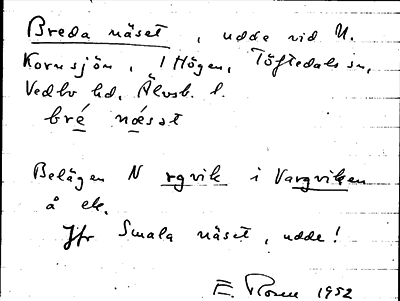 Breda näset, udde vid N.
Kornsjön, 1 Högen, Töftedals sn,
Vedbo hd, Älvsb. l.
bré næsət
Belägen N rgvik i Vargviken
å ek.
Jfr Smala näset, udde!
E. Rosen 1952